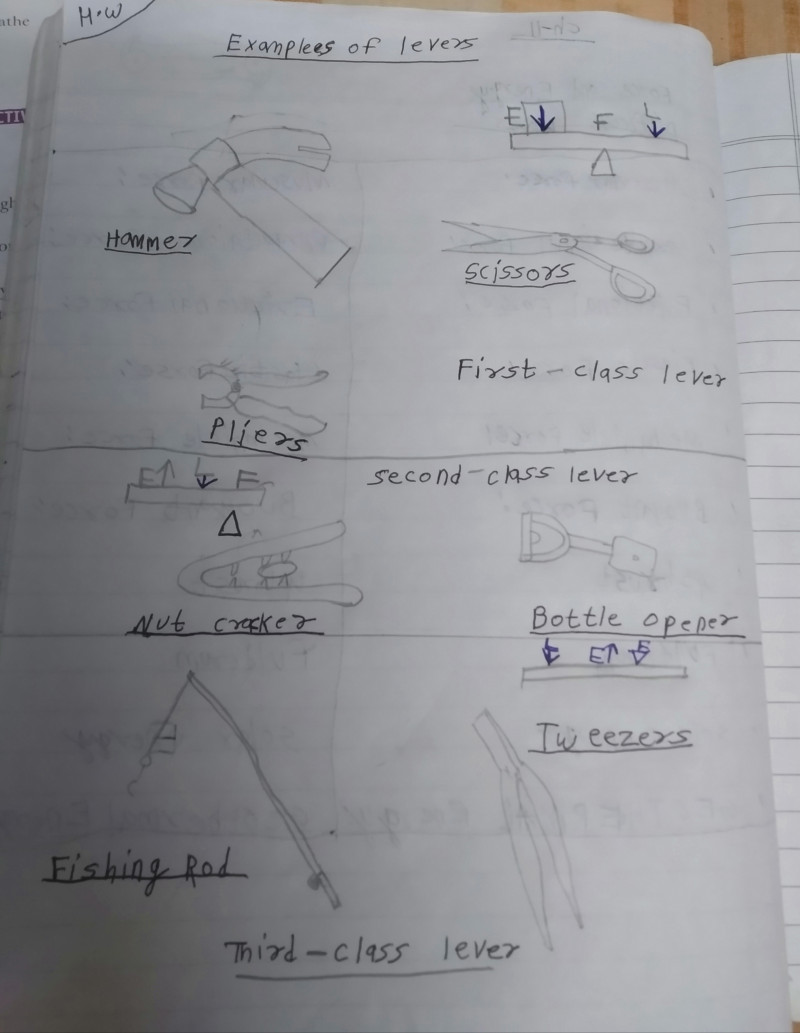 H.W
Examplees of levers
E F L
Hammer
Scissors
First-class lever
Pliers
second-class lever
E L F
Nut cracker
Bottle opener
E
Tweezers
Fishing Rod
Third-class lever